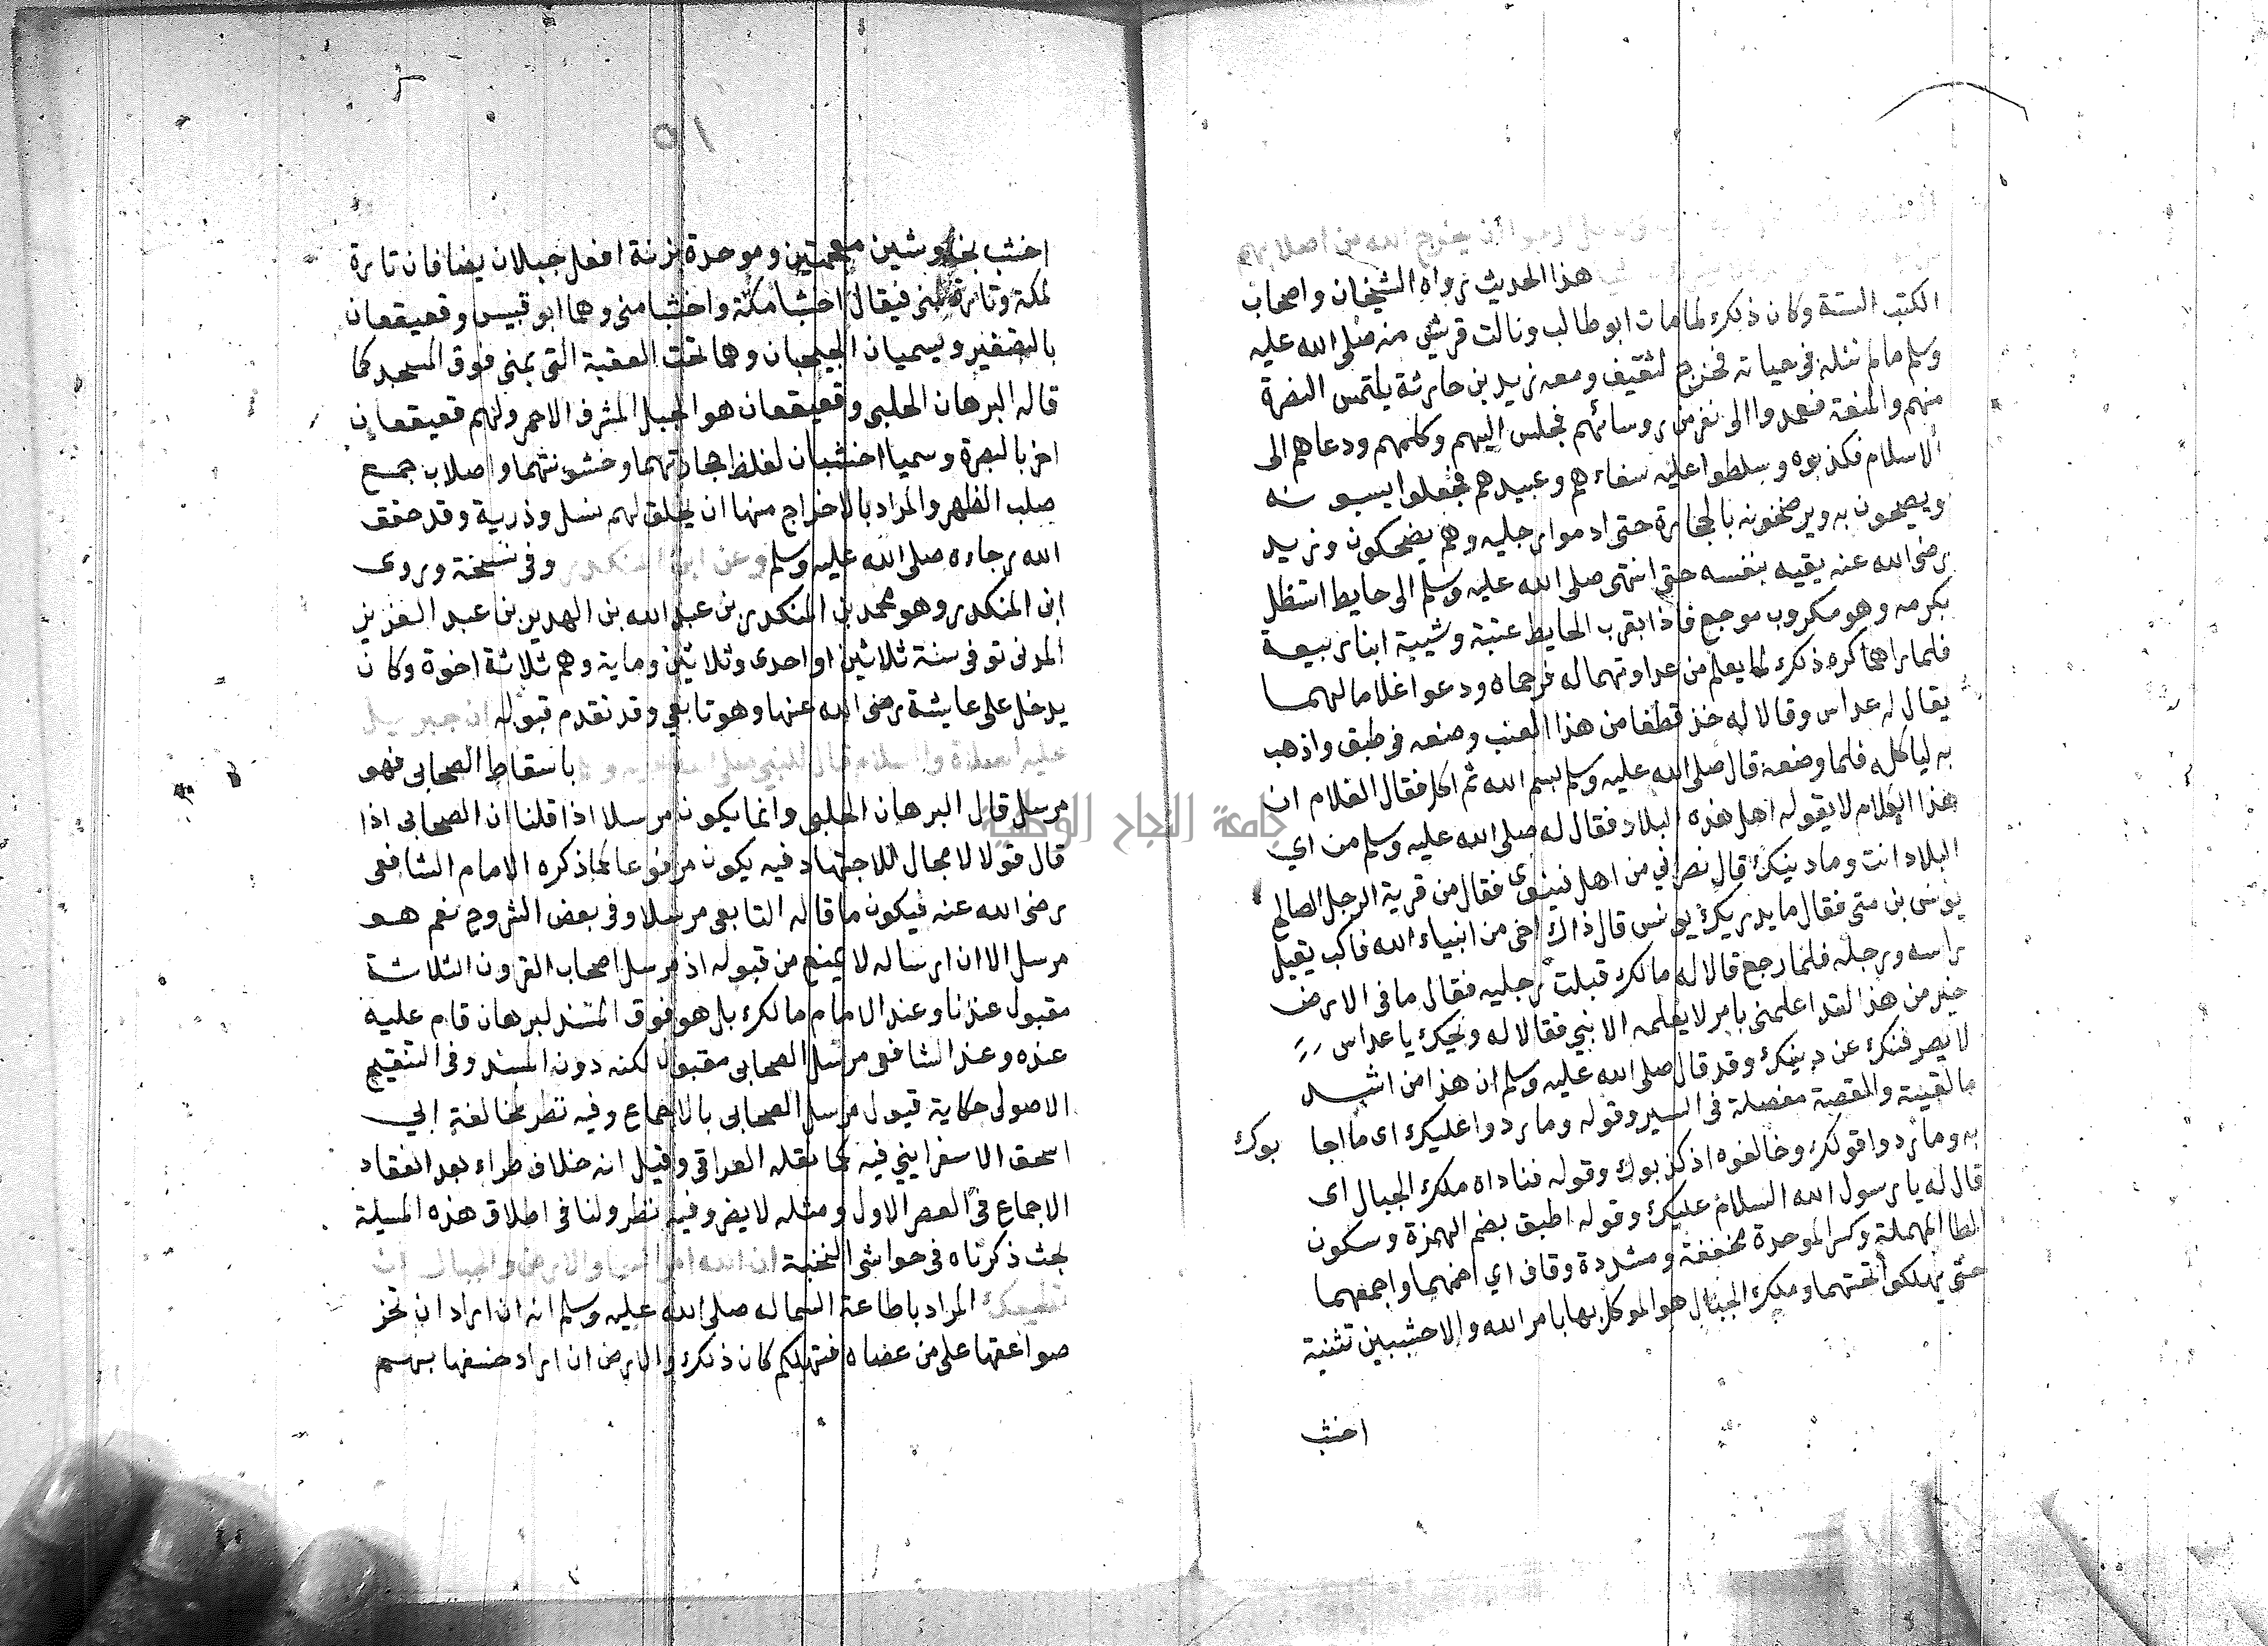 بل ارجو ان يخرج الله من اصلابهم
هذا الحديث رواه الشيخان واصحاب
الكتب الستة وكان ذلك لما مات ابو طالب ونالت قريش منه صلى الله عليه
وسلم ما لم تنله في حياته فخرج لثقيف ومعه زيد بن حارثة يلتمس النصرة
منهم والمنعة فعمدوا الى نفر من روسائهم فجلس اليهم وكلمهم ودعاهم الى
الاسلام فكذبوه وسلطوا عليه سفاءهم وعبيدهم فجعلوا يسبونه
ويصيحون به ويرضخونه بالحجارة حتى ادموا رجليه وهم يضحكون وزيد
رضى الله عنه يقيه بنفسه حتى انتهى صلى الله عليه وسلم الى حايط استظل
بكرمه وهو مكروب موجع فاذا بقرب الحايط عتبة وشيبة ابنا ربيعة
فلما راهما كره ذلك لما يعلم من عداوتهما له فرحماه ودعوا غلاما لهما
يقال له عداس وقالا له خذ قطفا من هذا العنب وضعه في طبق واذهب
به لياكله فلما وضعه قال صلى الله عليه وسلم بسم الله ثم اكل فقال الغلام ان
هذا الكلام لا يقوله اهل هذه البلاد فقال له صلى الله عليه وسلم من اي
البلاد انت وما دينك قال نصراني من اهل نينوى فقال من قرية الرجل الصالح
يونس بن متى فقال ما يدريك يونس قال ذاك اخى من انبياء الله فاكب يقبل
راسه ورجله فلما رجع قالا له مالك قبلت رجليه فقال ما فى الارض
خير من هذا لقد اعلمنى بامر لا يعلمه الا نبي فقالا له ويحك يا عداس
لا يصرفنك عن دينك وقد قال صلى الله عليه وسلم ان هذا من اشد
ما لقيته والقصة مفصلة فى السير وقوله وما ردوا عليك اى ما اجا بوك
به وما ردوا قولك وخالفوه اذ كذبوك وقوله فناداه ملك الجبال اى
قال له يا رسول الله السلام عليك وقوله اطبق بضم الهمزة وسكون
الطا المهملة وكسر الموحدة مخففة ومشددة وقاف اي اضمهما واجمعهما
حتى يهلكوا تحتهما وملك الجبال هو الموكل بها بامر الله والاخشبين تثنية
اخشب
٥١
اخشب بخا وشين معجمتين وموحدة بزنة افعل جبلان يضافان تارة
لمكة وتارة لمنى فيقال اخشبا مكة واخشبا منى وهما ابو قبيس وقعيقعان
بالتصغير ويسميان الجبجبان وهما تحت العقبة التى بمنى فوق المسجد كما
قاله البرهان الحلبى وقعيقعان هو الجبل المشرف الاحمر ولهم قعيقعان
اخر بالبصرة وسميا اخشبان لغلظ حجارتهما وخشونتهما واصلاب جمع
صلب الظهر والمراد بالاخراج منها ان يخلق لهم نسل وذرية وقد حقق
الله رجاءه صلى الله عليه وسلم وعن ابن المنكدر وفى نسخة وروى
ابن المنكدر وهو محمد بن المنكدر بن عبد الله بن الهدير بن عبد العزيز
المدنى توفى سنة ثلاثين او احدى وثلاثين وماية وهم ثلاثة اخوة وكان
يدخل على عايشة رضى الله عنها وهو تابعى وقد تقدم قبوله ان جبريل
عليه الصلاة والسلام قال للنبي صلى الله عليه وسلم باسقاط الصحابى فهو
مرسل قال البرهان الحلبى وانما يكون مرسلا اذا قلنا ان الصحابى اذا
قال قولا لا مجال للاجتهاد فيه يكون مرفوعا كما ذكره الامام الشافعى
رضى الله عنه فيكون ما قاله التابعى مرسلا وفى بعض الشروح نعم هو
مرسل الا ان ارساله لا يمنع من قبوله اذ مرسل اصحاب القرون الثلاثة
مقبول عندنا وعند الامام مالك بل هو فوق المسند لبرهان قام عليه
عنده وعند الشافعى مرسل الصحابى مقبول لكنه دون المسند وفى التنقيح
الاصولى حكاية قبول مرسل الصحابى بالاجماع وفيه نظر لمخالفة ابي
اسحق الاسفرايينى فيه كما نقله العراقى وقيل انه خلاف طراء بعد انعقاد
الاجماع فى العصر الاول ومثله لا يضر وفيه نظر ولنا فى اطلاق هذه المسيلة
بحث ذكرناه فى حواشى النخبة ان الله امر السما والارض والجبال ان
تطيعك المراد باطاعة السما له صلى الله عليه وسلم انه ان اراد ان تخر
صواعقها على من عصاه فتهلكم كان ذلك والارض ان اراد خسفها بهم
جامعة النجاح الوطنية